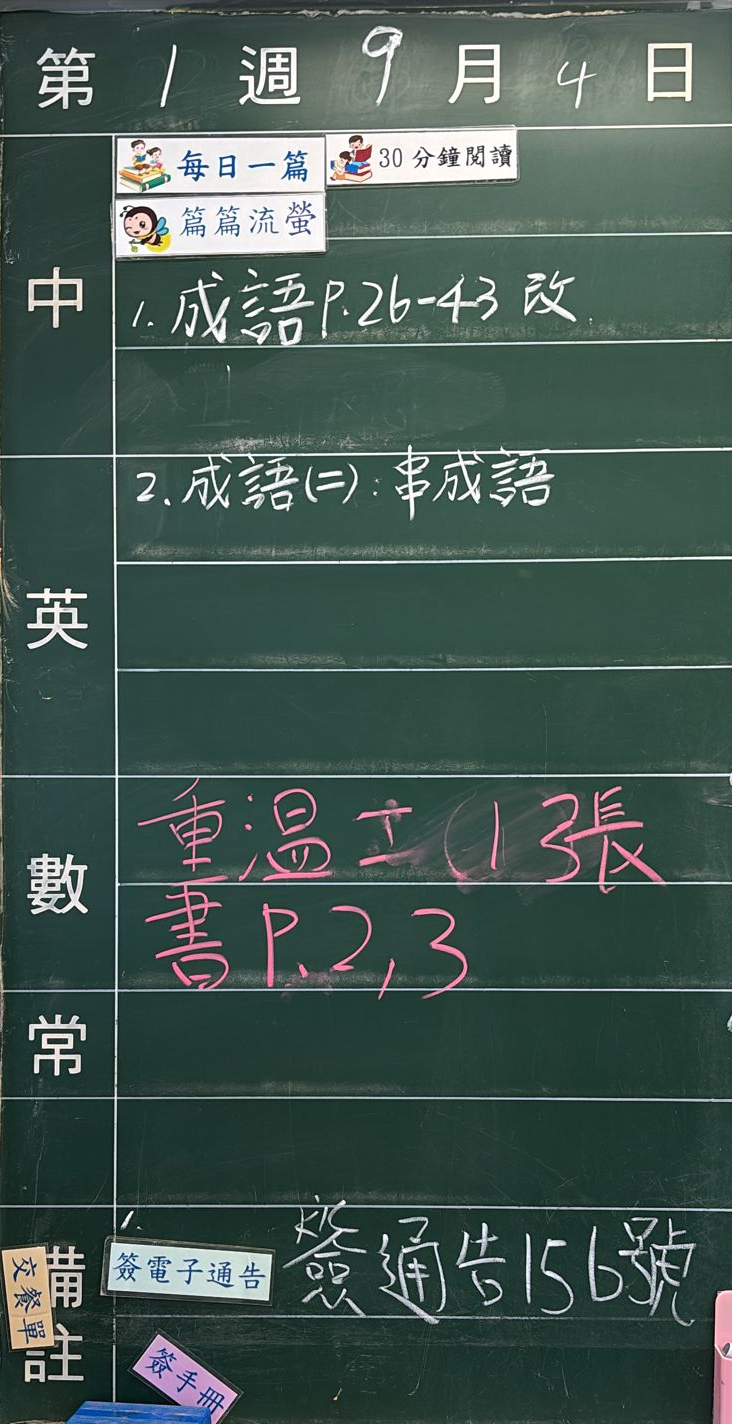 第1週9月4日
每日一篇 30分鐘閱讀
篇篇流螢
中
1. 成語P.26-43 改
2. 成語(二):串成語
英
數
重溫工(1)3張
書P.2,3
常
備註
1.
簽電子通告 簽通告156號
交餐單
簽手冊